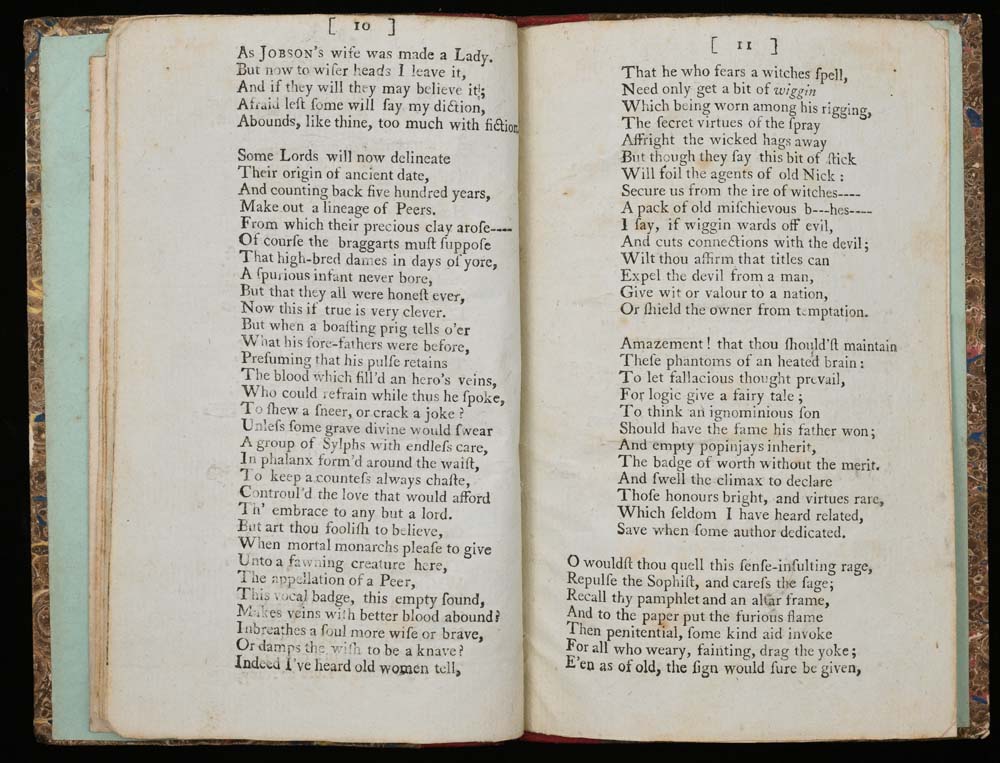 [ 10 ]
As JOBSON'S wife was made a Lady.
But now to wiſer heads I leave it,
And if they will they may believe it;
Afraid leſt ſome will ſay my diction,
Abounds, like thine, too much with fiction
Some Lords will now delineate
Their origin of ancient date,
And counting back five hundred years,
Make out a lineage of Peers.
From which their precious clay aroſe----
Of courſe the braggarts muſt ſuppoſe
That high-bred dames in days of yore,
A ſpurious infant never bore,
But that they all were honeſt ever,
Now this if true is very clever.
But when a boaſting prig tells o'er
What his fore-fathers were before,
Preſuming that his pulſe retains
The blood which fill'd an hero's veins,
Who could refrain while thus he ſpoke,
To ſhew a ſneer, or crack a joke?
Unleſs ſome grave divine would ſwear
A group of Sylphs with endleſs care,
In phalanx form'd around the waiſt,
To keep a counteſs always chaſte,
Controul'd the love that would afford
Th' embrace to any but a lord.
But art thou fooliſh to believe,
When mortal monarchs pleaſe to give
Unto a fawning creature here,
The appellation of a Peer,
This vocal badge, this empty ſound,
Makes veins with better blood abound?
Inbreathes a ſoul more wiſe or brave,
Or damps the wiſh to be a knave?
Indeed I've heard old women tell,
[ 11 ]
That he who fears a witches ſpell,
Need only get a bit of wiggin
Which being worn among his rigging,
The ſecret virtues of the ſpray
Affright the wicked hags away
But though they ſay this bit of ſtick
Will foil the agents of old Nick:
Secure us from the ire of witches----
A pack of old miſchievous b---hes----
I ſay, if wiggin wards off evil,
And cuts connections with the devil;
Wilt thou affirm that titles can
Expel the devil from a man,
Give wit or valour to a nation,
Or ſhield the owner from temptation.
Amazement! that thou ſhould'ſt maintain
Theſe phantoms of an heated brain:
To let fallacious thought prevail,
For logic give a fairy tale;
To think an ignominious ſon
Should have the fame his father won;
And empty popinjays inherit,
The badge of worth without the merit.
And ſwell the climax to declare
Thoſe honours bright, and virtues rare,
Which ſeldom I have heard related,
Save when ſome author dedicated.
O wouldſt thou quell this ſenſe-inſulting rage,
Repulſe the Sophiſt, and careſs the ſage;
Recall thy pamphlet and an altar frame,
And to the paper put the furious flame
Then penitential, ſome kind aid invoke
For all who weary, fainting, drag the yoke;
E'en as of old, the ſign would ſure be given,